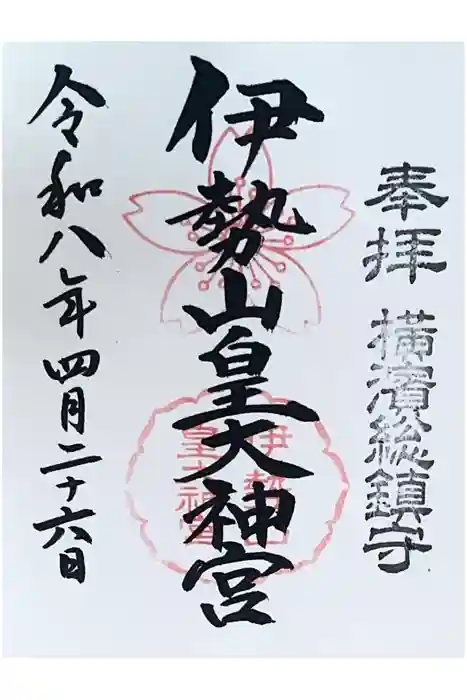 奉拝 横濱総鎮守
伊勢山皇大神宮
伊勢山
皇大神宮
令和八年四月二十六日